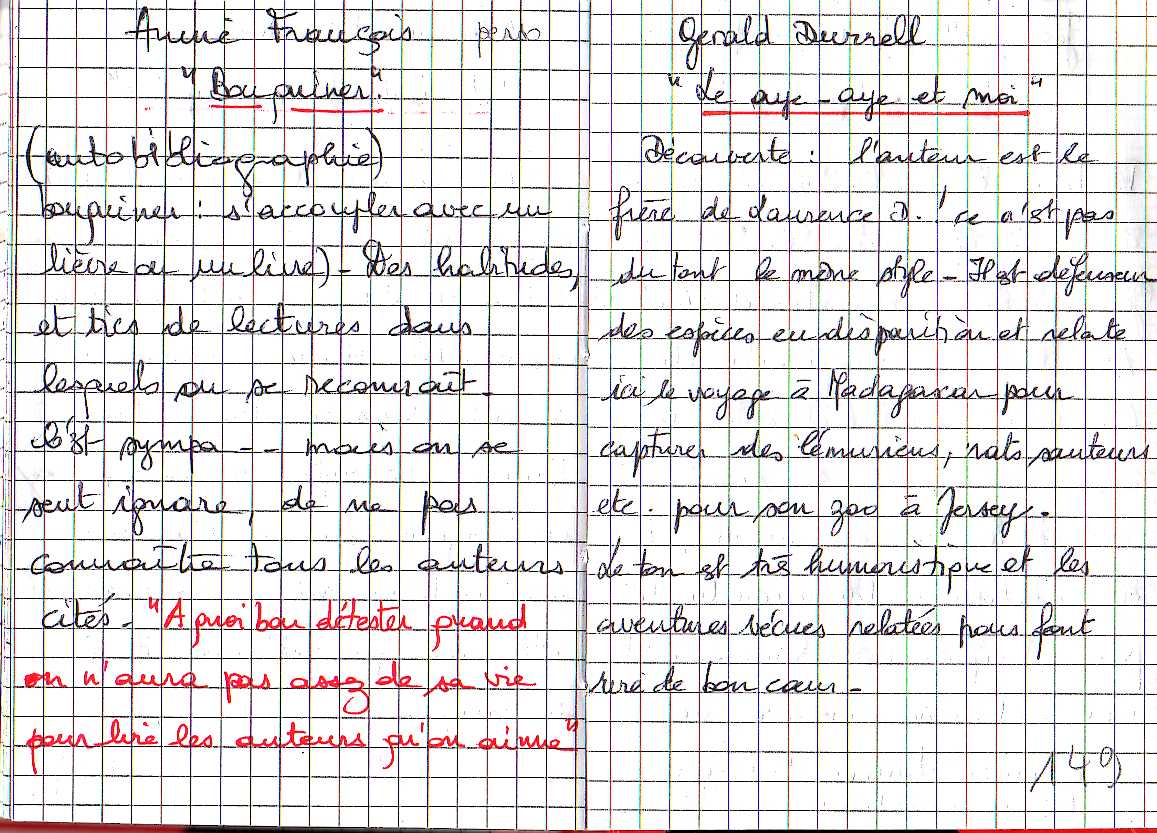 Annie François perso
"Bouquiner"
(autobibliographie)
bouquiner : s'accoupler avec un
lièvre ou un livre) - Des habitudes,
et tics de lectures dans
lesquels on se reconnaît -
C'est sympa -- mais on se
sent ignare, de ne pas
connaître tous les auteurs
cités - "A quoi bon détester quand
on n'aura pas assez de sa vie
pour lire les auteurs qu'on aime"
Gerald Durrell
"Le aye-aye et moi"
Découverte : l'auteur est le
frère de Laurence D. ! ce n'est pas
du tout le même style - Il est défenseur
des espèces en disparition et relate
ici le voyage à Madagascar pour
capturer des lémuriens, rats sauteurs
etc. pour son zoo à Jersey.
Le ton est très humoristique et les
aventures vécues relatées nous font
rire de bon cœur -
149